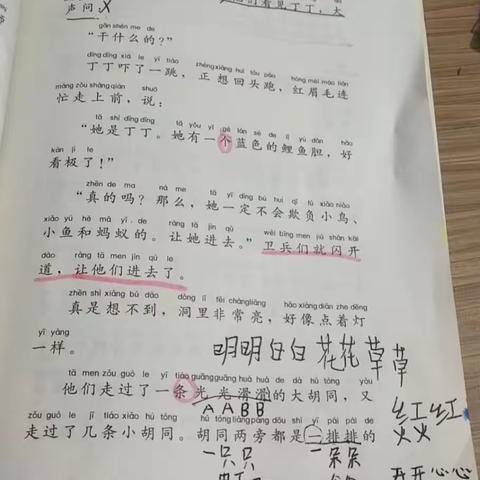 们看见丁丁，大
声问：
gàn shén me de
“干什么的？”
dīng dīng xià le yí tiào zhèng xiǎng huí tóu pǎo hóng méi máo lián
丁丁吓了一跳，正想回头跑，红眉毛连
máng zǒu shàng qián shuō
忙走上前，说：
tā shì dīng dīng tā yǒu yí gè lán sè de lǐ yú dǎn hǎo
“她是丁丁。她有一个蓝色的鲤鱼胆，好
kàn jí le
看极了！”
zhēn de ma nà me tā yí dìng bú huì qī fù xiǎo niǎo
“真的吗？那么，她一定不会欺负小鸟、
xiǎo yú hé mǎ yǐ de ràng tā jìn qù wèi bīng men jiù shǎn kāi
小鱼和蚂蚁的。让她进去。”卫兵们就闪开
dào ràng tā men jìn qù le
道，让他们进去了。
zhēn shì xiǎng bú dào dòng lǐ fēi cháng liàng hǎo xiàng diǎn zhe dēng
真是想不到，洞里非常亮，好像点着灯
yí yàng
一样。
明明白白 花花草草
tā men zǒu guò le yì tiáo guāng guāng huá huá de dà hú tòng yòu
他们走过了一条光光滑滑的大胡同，又
AABB
红红火火
zǒu guò le jǐ tiáo xiǎo hú tòng hú tòng liǎng páng dōu shì yì pái pái de
走过了几条小胡同。胡同两旁都是一排排的
一只只 一朵朵
开开心心